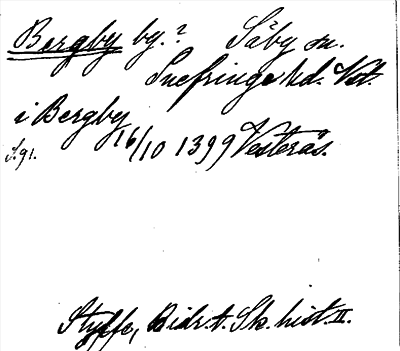 Bergby by.? Säby sn.
Snefringe hd. Vst.
i Bergby
S. 91. 16/10 1399 Vesterås.
Styffe, Bidr. t. Sk. hist. II.